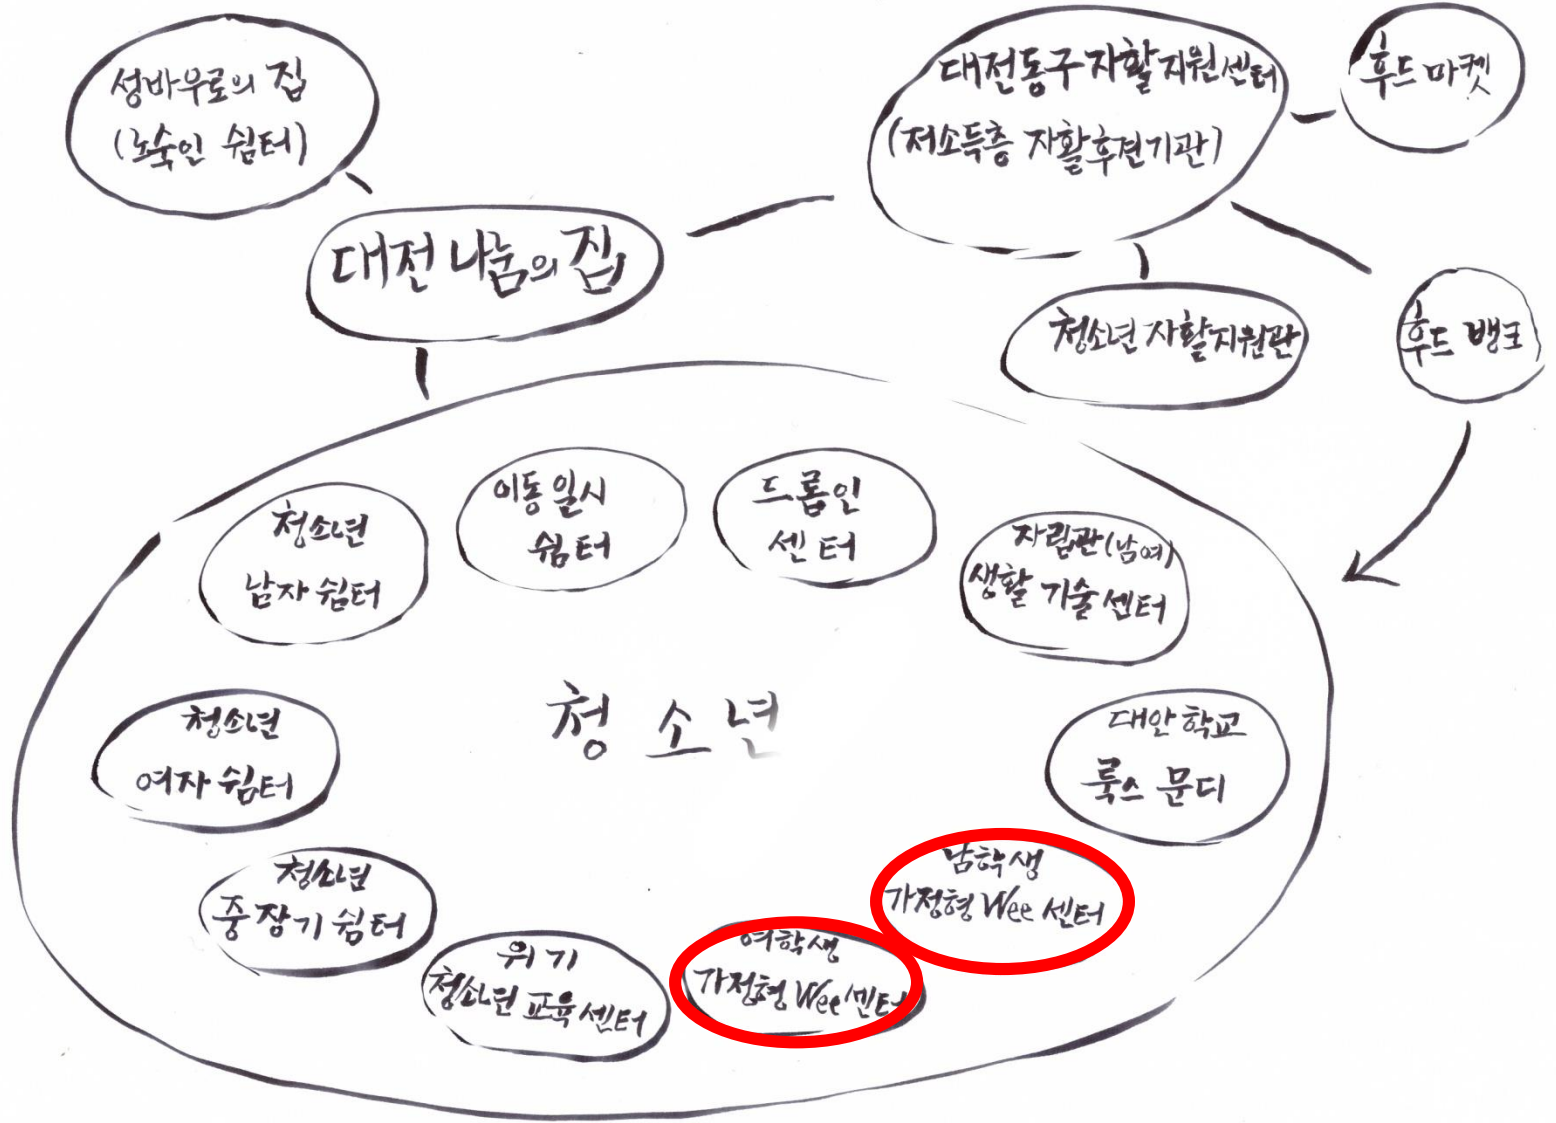 성바우로의 집
(노숙인 쉼터)
대전동구자활지원센터
(저소득층 자활후견기관)
후드마켓
대전 나눔의 집
청소년 자활지원관
후드 뱅크
청소년
남자 쉼터
이동 일시
쉼터
드롭인
센터
자립관(남여)
생활 기술 센터
청소년
청소년
여자 쉼터
대안 학교
룩스 문디
청소년
중장기 쉼터
위기
청소년 교육 센터
여학생
가정형 Wee 센터
남학생
가정형 Wee 센터